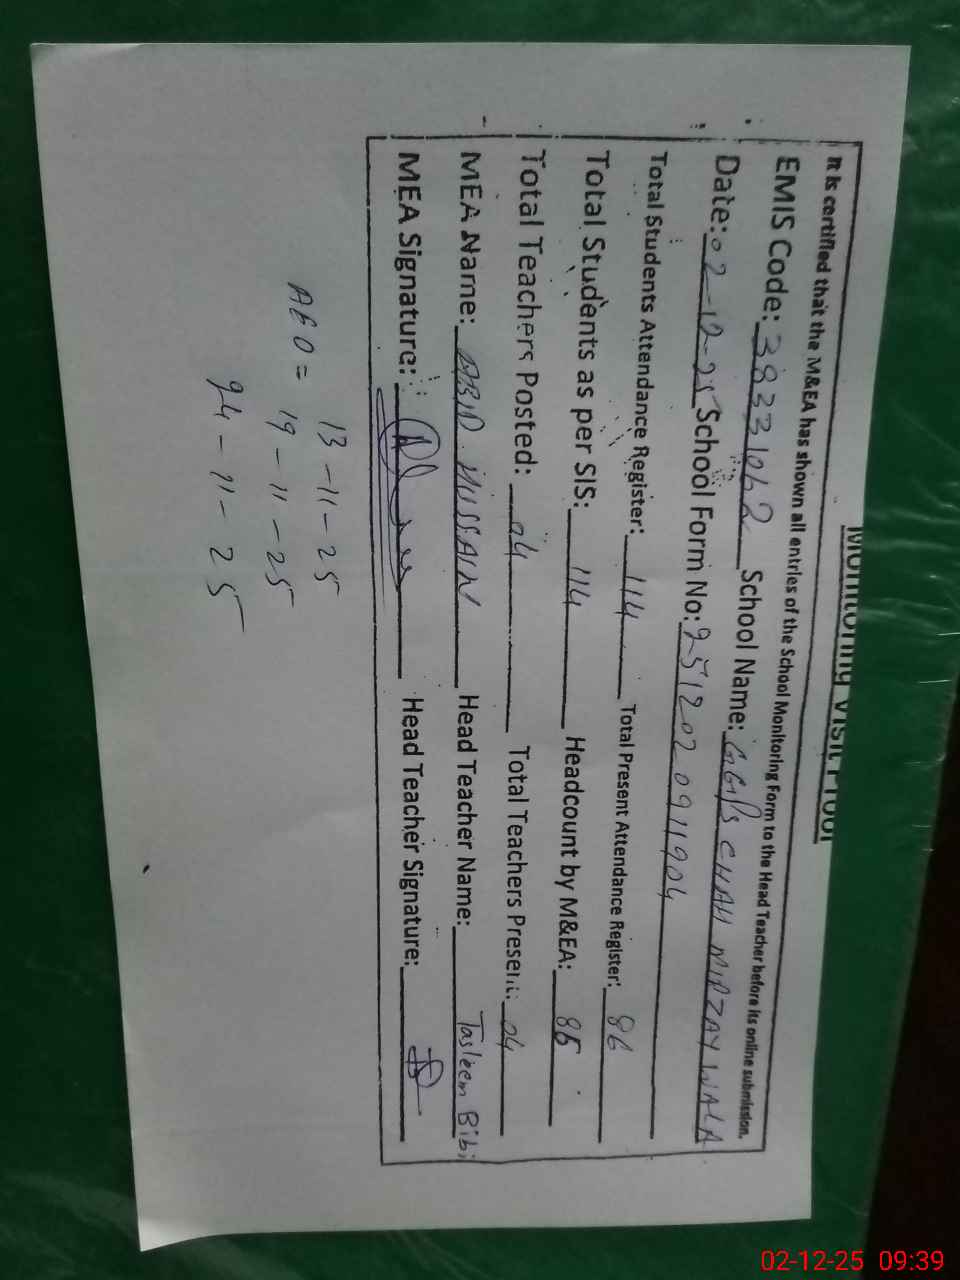 Monitoring Visit Proof
It is certified that the M&EA has shown all entries of the School Monitoring Form to the Head Teacher before its online submission.
EMIS Code: 38331062 School Name: GGPS CHAH MIRZAY WALA
Date: 02-12-25 School Form No: 2512020911904
Total Students Attendance Register: 114 Total Present Attendance Register: 86
Total Students as per SIS: 114 Headcount by M&EA: 86
Total Teachers Posted: 04 Total Teachers Present: 04
MEA Name: ABID HUSSAIN Head Teacher Name: Tasleem Bibi
MEA Signature: Head Teacher Signature:
13-11-25
AEO = 19-11-25
24-11-25
02-12-25 09:39